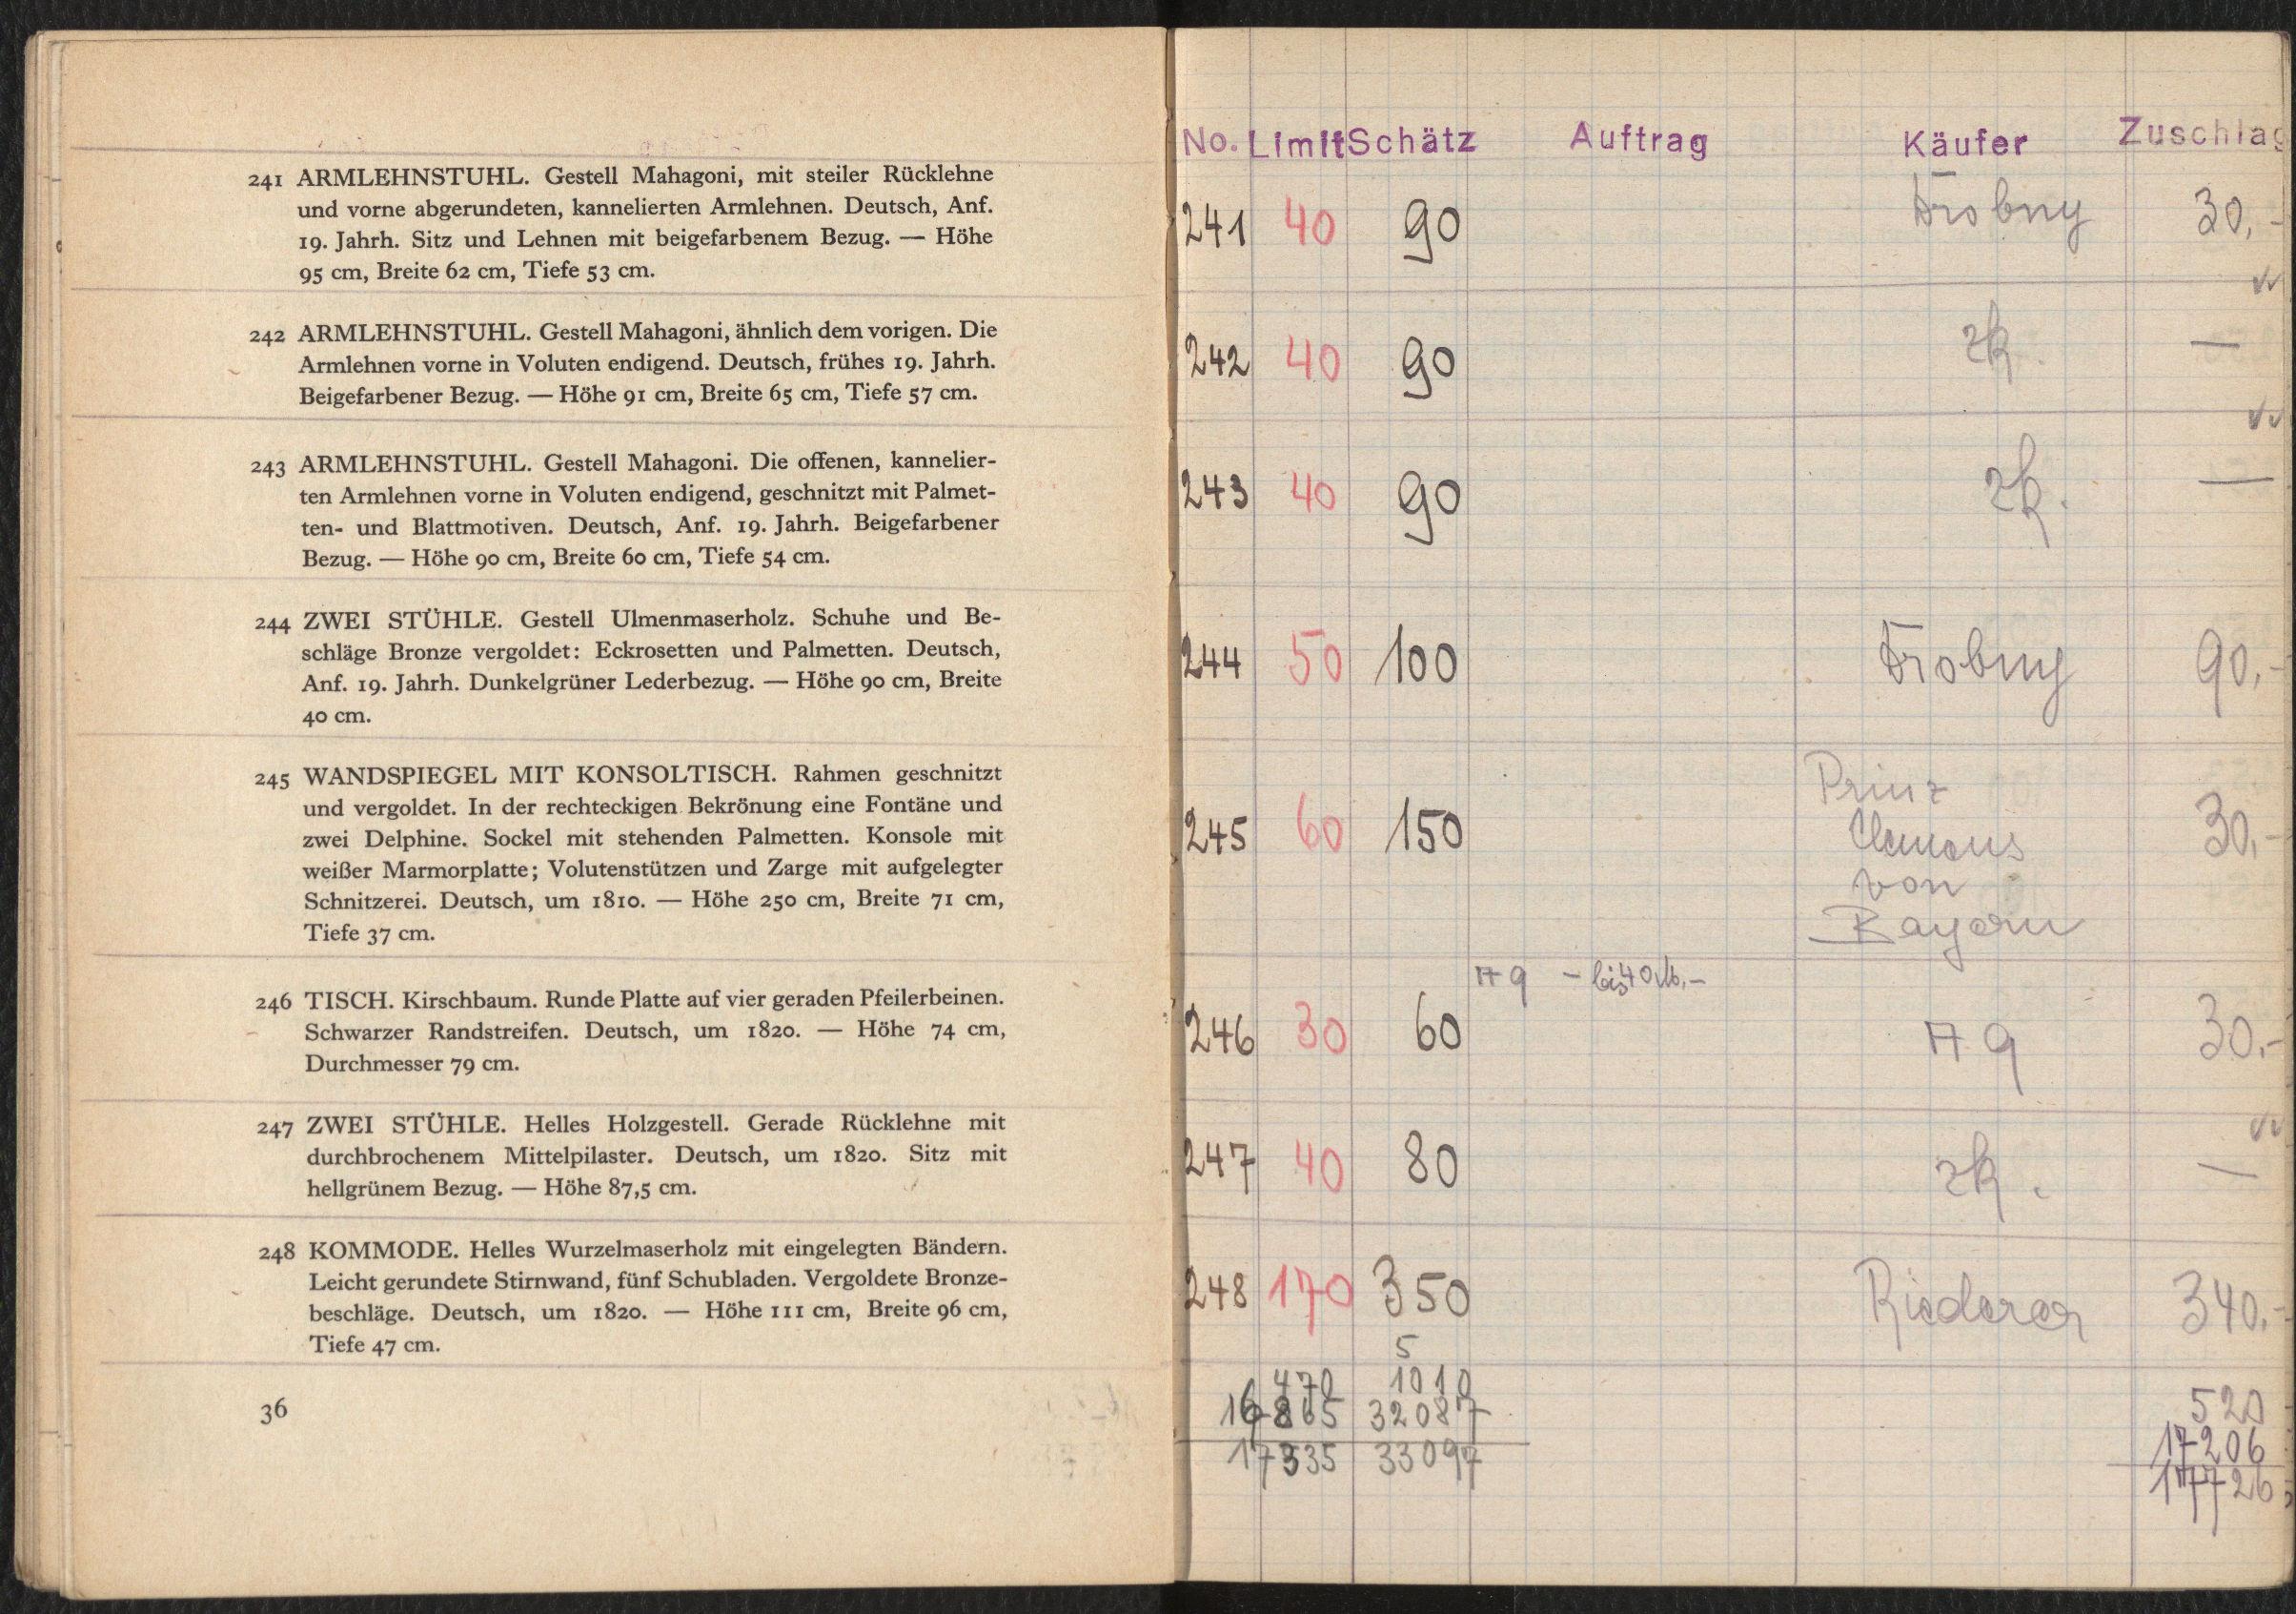 241 ARMLEHNSTUHL. Gestell Mahagoni, mit steiler Rücklehne
und vorne abgerundeten, kannelierten Armlehnen. Deutsch, Anf.
19. Jahrh. Sitz und Lehnen mit beigefarbenem Bezug. — Höhe
95 cm, Breite 62 cm, Tiefe 53 cm.
242 ARMLEHNSTUHL. Gestell Mahagoni, ähnlich dem vorigen. Die
Armlehnen vorne in Voluten endigend. Deutsch, frühes 19. Jahrh.
Beigefarbener Bezug. — Höhe 91 cm, Breite 65 cm, Tiefe 57 cm.
243 ARMLEHNSTUHL. Gestell Mahagoni. Die offenen, kannelier-
ten Armlehnen vorne in Voluten endigend, geschnitzt mit Palmet-
ten- und Blattmotiven. Deutsch, Anf. 19. Jahrh. Beigefarbener
Bezug. — Höhe 90 cm, Breite 60 cm, Tiefe 54 cm.
244 ZWEI STÜHLE. Gestell Ulmenmaserholz. Schuhe und Be-
schläge Bronze vergoldet: Eckrosetten und Palmetten. Deutsch,
Anf. 19. Jahrh. Dunkelgrüner Lederbezug. — Höhe 90 cm, Breite
40 cm.
245 WANDSPIEGEL MIT KONSOLTISCH. Rahmen geschnitzt
und vergoldet. In der rechteckigen Bekrönung eine Fontäne und
zwei Delphine. Sockel mit stehenden Palmetten. Konsole mit
weißer Marmorplatte; Volutenstützen und Zarge mit aufgelegter
Schnitzerei. Deutsch, um 1810. — Höhe 250 cm, Breite 71 cm,
Tiefe 37 cm.
246 TISCH. Kirschbaum. Runde Platte auf vier geraden Pfeilerbeinen.
Schwarzer Randstreifen. Deutsch, um 1820. — Höhe 74 cm,
Durchmesser 79 cm.
247 ZWEI STÜHLE. Helles Holzgestell. Gerade Rücklehne mit
durchbrochenem Mittelpilaster. Deutsch, um 1820. Sitz mit
hellgrünem Bezug. — Höhe 87,5 cm.
248 KOMMODE. Helles Wurzelmaserholz mit eingelegten Bändern.
Leicht gerundete Stirnwand, fünf Schubladen. Vergoldete Bronze-
beschläge. Deutsch, um 1820. — Höhe 111 cm, Breite 96 cm,
Tiefe 47 cm.
36
No. Limit Schätz Auftrag Käufer Zuschlag
241 40 90 Drobny 30,-
242 40 90 zk. —
243 40 90 zk. —
244 50 100 Drobny 90,-
245 60 150 Prinz 30,-
Clemens
von
Bayern
- bis 40 M.-
246 30 60 30,-
247 40 80 zk. —
248 170 350 Riederer 340,-
5
470 1010 520
16865 32087 17206
17335 33097 17726